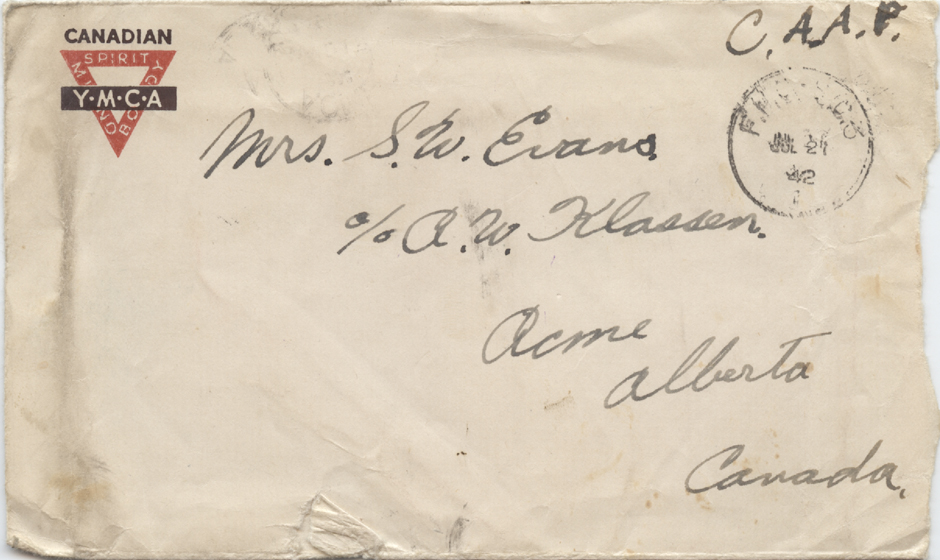 C.A.A.F.
CANADIAN
SPIRIT
MIND
BODY
Y·M·C·A
JUL 21
42
Mrs. S.W. Evans
c/o A.W. Klassen.
Acme
Alberta
Canada.